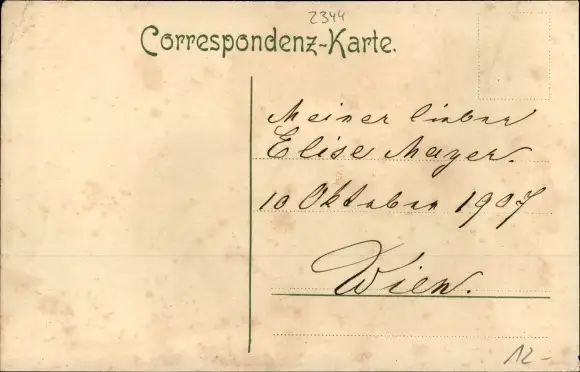 2344
Correspondenz-Karte.
Meiner lieben
Elise Mayer.
10 Oktober 1907
Wien.
12-